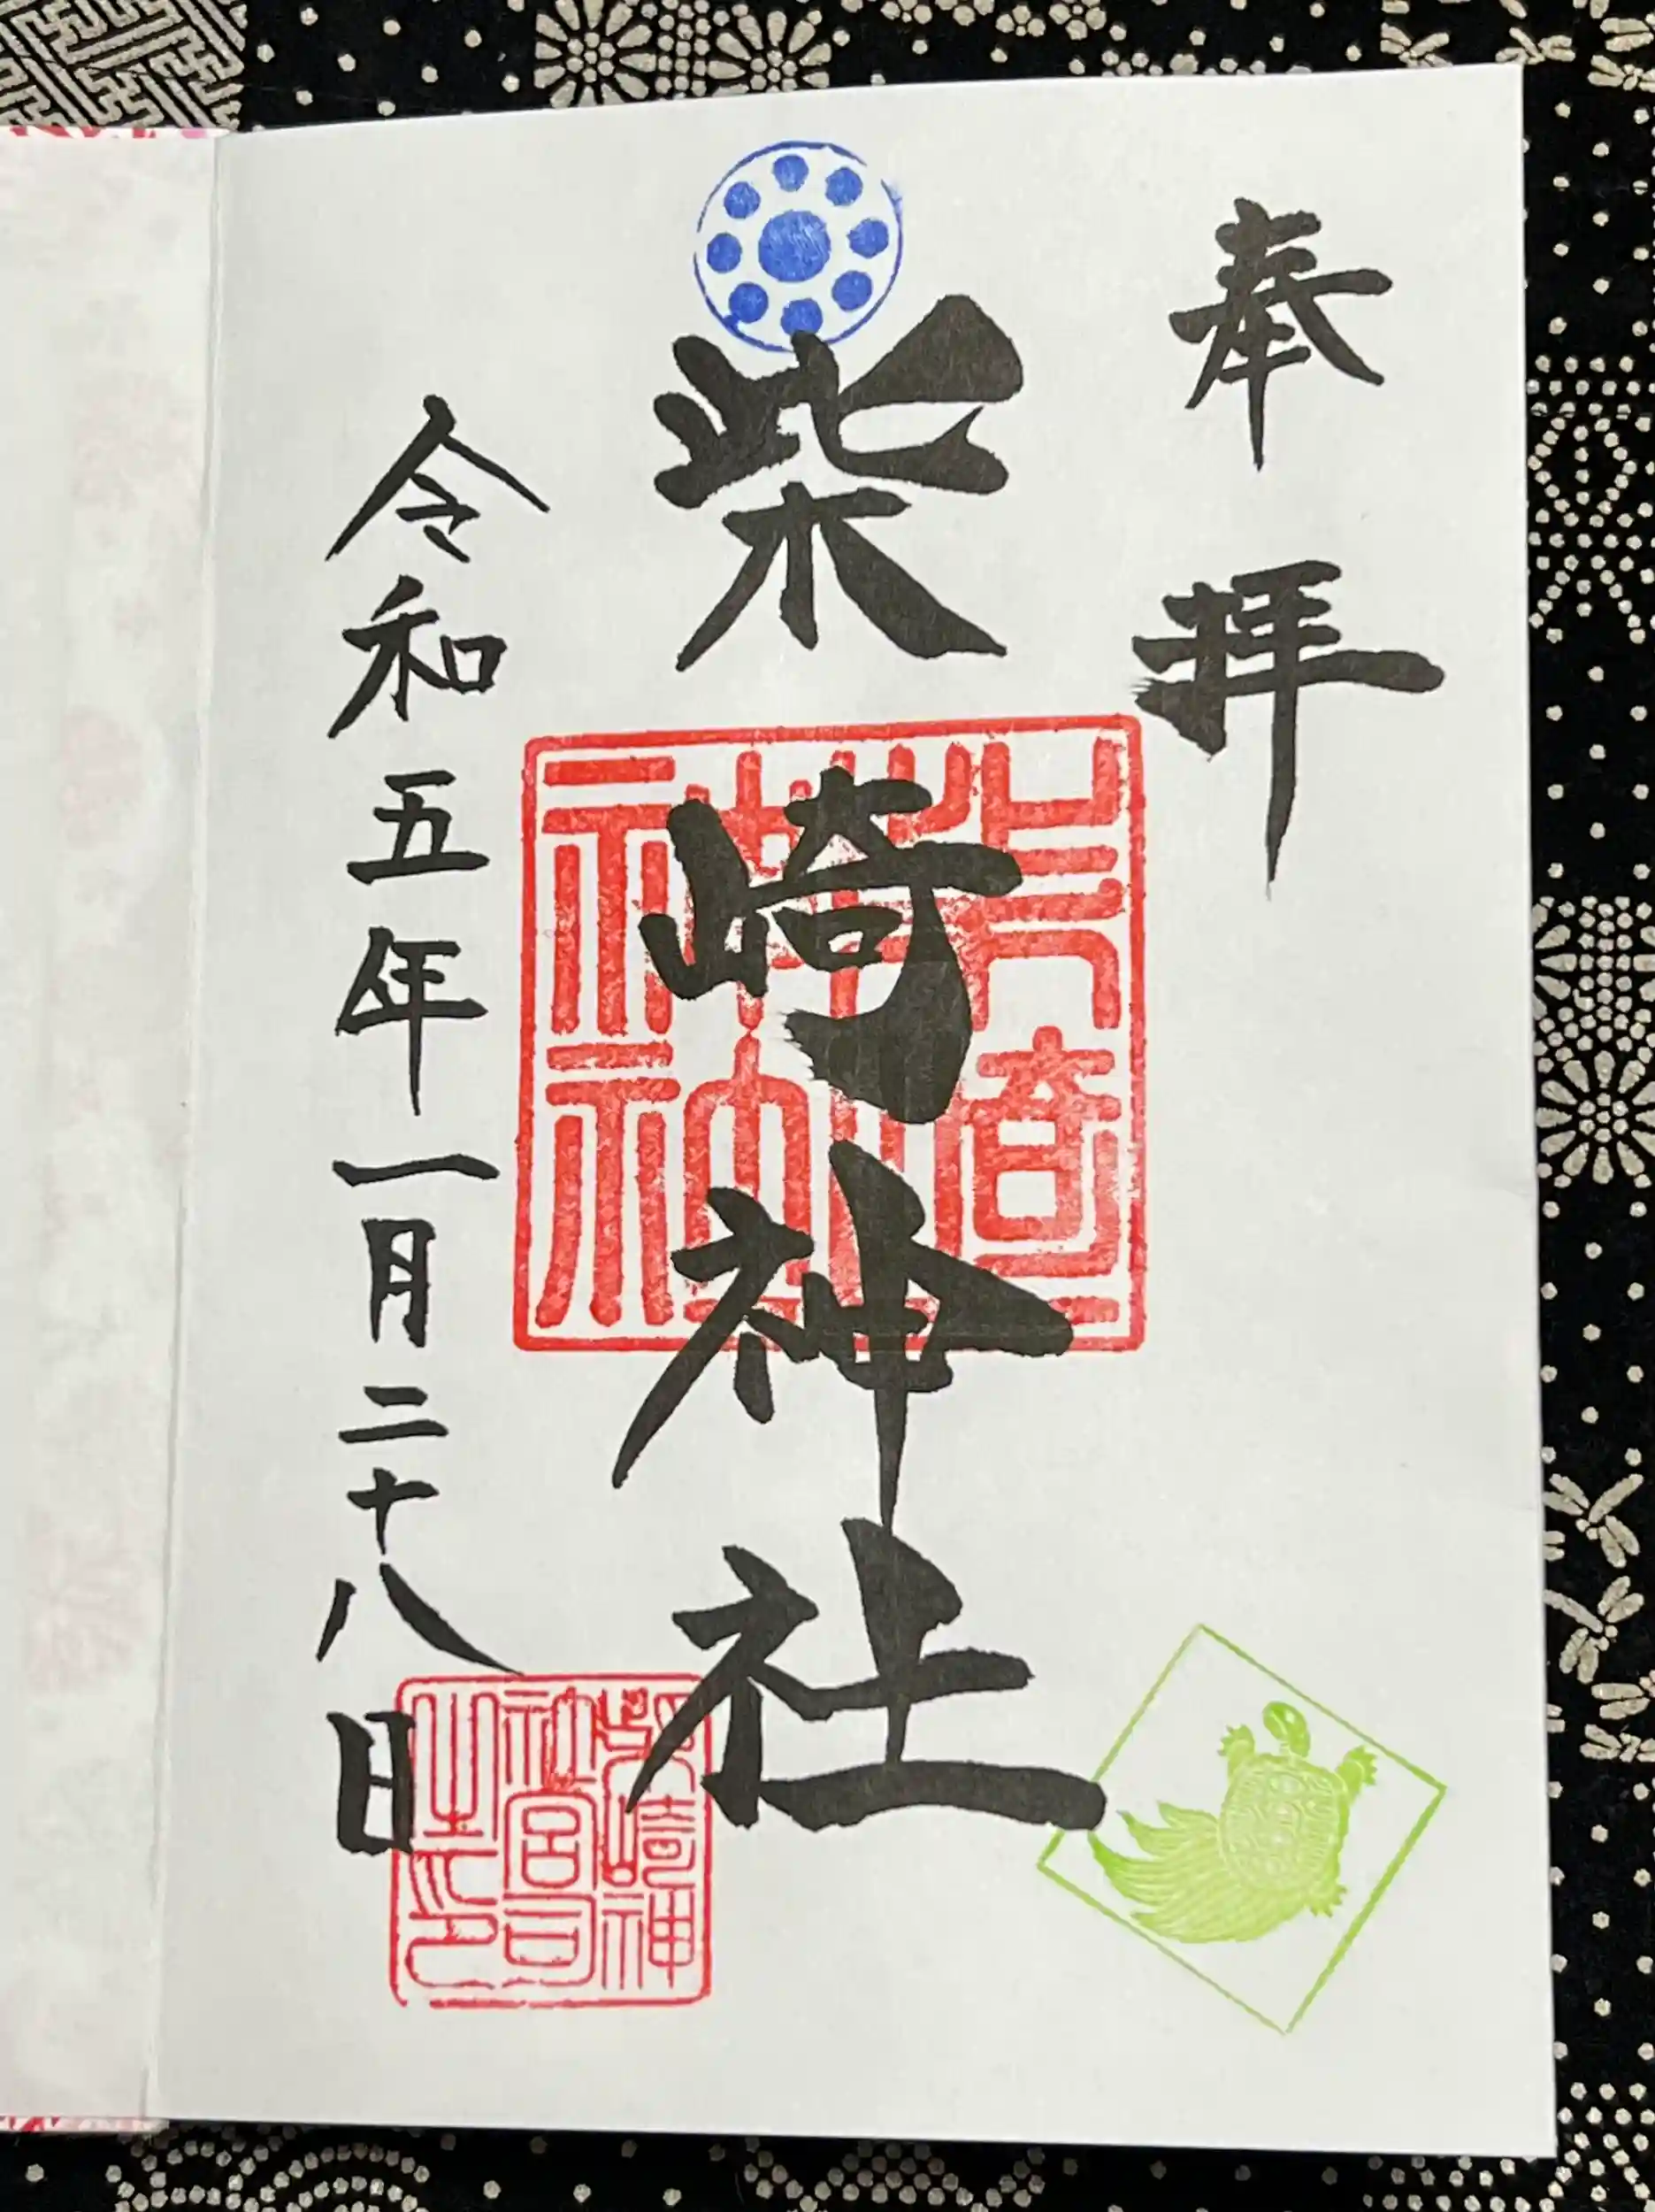 奉拝
柴崎神社
令和五年一月二十八日
柴崎神社
柴崎神社宮司之印